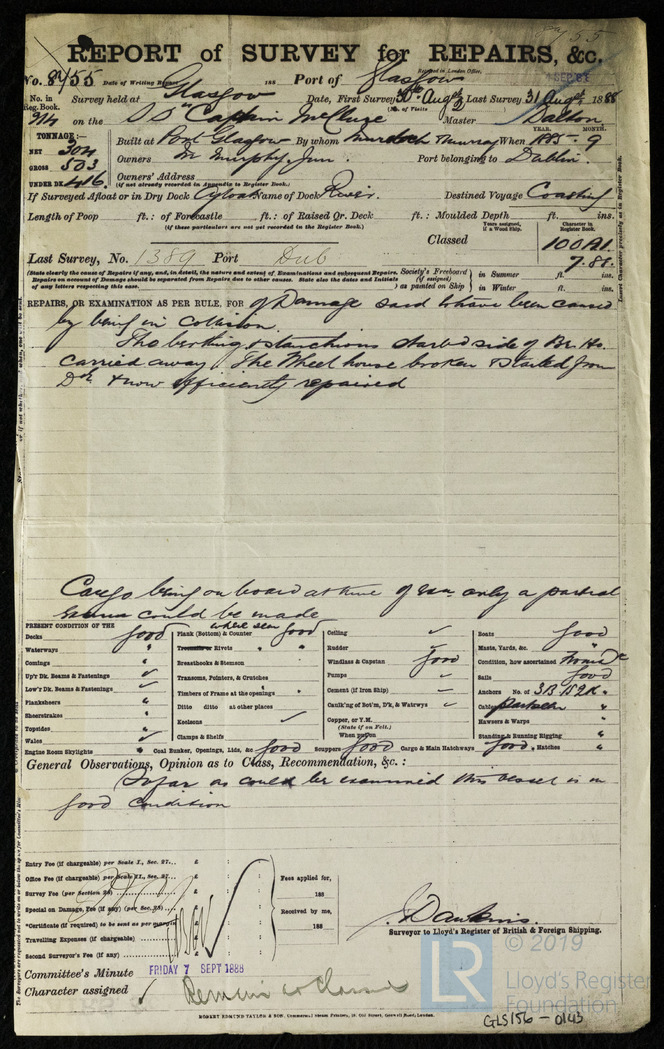 REPORT of SURVEY for REPAIRS, &c.
No. 8755 Date of Writing Report 188 Port of Glasgow Received in London Office,
No. in Reg. Book. Survey held at Glasgow Date, First Survey 30th Augt Last Survey 31 Augst 1888
914 on the SS "Captain McClure" (No. of Visits Master Dalton
TONNAGE:— Built at Port Glasgow By whom Murdoch Murray When YEAR. 1885 MONTH. 9
NET 304
GROSS 503 Owners M. Murphy, Jun. Port belonging to Dublin
UNDER DK 416 Owners' Address
(if not already recorded in Appendix to Register Book.)
If Surveyed Afloat or in Dry Dock Afloat Name of Dock River. Destined Voyage Coasting
Length of Poop ft.: of Forecastle ft.: of Raised Qr. Deck ft.: Moulded Depth ft. ins.
(if these particulars are not yet recorded in the Register Book.)
Classed Years assigned, if a Wood Ship. Character in Register Book. 100A1
7.88.
Last Survey, No. 1389 Port Dub
(State clearly the cause of Repairs if any, and, in detail, the nature and extent of Examinations and subsequent Repairs.
Repairs on account of Damage should be separated from Repairs due to other causes. State also the dates and Initials of any letters respecting this case.
Society's Freeboard (if assigned) as painted on Ship in Summer ft. ins.
in Winter ft. ins.
REPAIRS, OR EXAMINATION AS PER RULE, FOR of Damage said to have been caused
by being in collision.
The & stanchions starbd side of Br. Ho.
carried away. The Wheel house broken & started from
Dk & now efficiently repaired
Cargo being on board at time of only a partial
could be made
PRESENT CONDITION OF THE
Decks good
Waterways "
Comings "
Up'r Dk. Beams & Fastenings ✓
Low'r Dk. Beams & Fastenings ✓
Planksheers "
Sheerstrakes "
Topsides "
Wales ✓
Engine Room Skylights "
where seen
Plank (Bottom) & Counter good
Treenails or Rivets "
Breasthooks & Stemson
Transoms, Pointers, & Crutches
Timbers of Frame at the openings
Ditto ditto at other places
Keelsons ✓
Clamps & Shelfs
Coal Bunker, Openings, Lids, &c. good
Ceiling ✓
Rudder ✓
Windlass & Capstan good
Pumps ✓
Cement (if Iron Ship) ✓
Caulk'g of Bot'm, D'k, & Watrwys ✓
Copper, or Y.M.
(State if on Felt.)
When put on
Scuppers good Cargo & Main Hatchways good
Boats good
Masts, Yards, &c. "
Condition, how ascertained
Sails good
Anchors No. of 3B 1S 2K "
Cables
Hawsers & Warps "
Standing & Running Rigging "
Hatches "
General Observations, Opinion as to Class, Recommendation, &c.:
So far as could be examined this vessel is in
good condition
Entry Fee (if chargeable) per Scale I., Sec. 27... £ : :
Office Fee (if chargeable) per Scale II., Sec. 27... £ : :
Survey Fee (per Section 28) £ : :
Special on Damage, Fee (if any) (per Sec. 28) £ : :
*Certificate (if required) to be sent as per margin
Travelling Expenses (if chargeable) £ : :
Second Surveyor's Fee (if any) £ : :
Fees applied for,
188
Received by me,
188
Surveyor to Lloyd's Register of British & Foreign Shipping.
Committee's Minute FRIDAY 7 SEPT 1888
Character assigned Remain as Classed
ROBERT EDMUND TAYLOR & SON, Commercial Steam Printers, 19, Old Street, Goswell Road, London.
LR © 2019
Lloyd's Register
Foundation
GLS156 - 0143